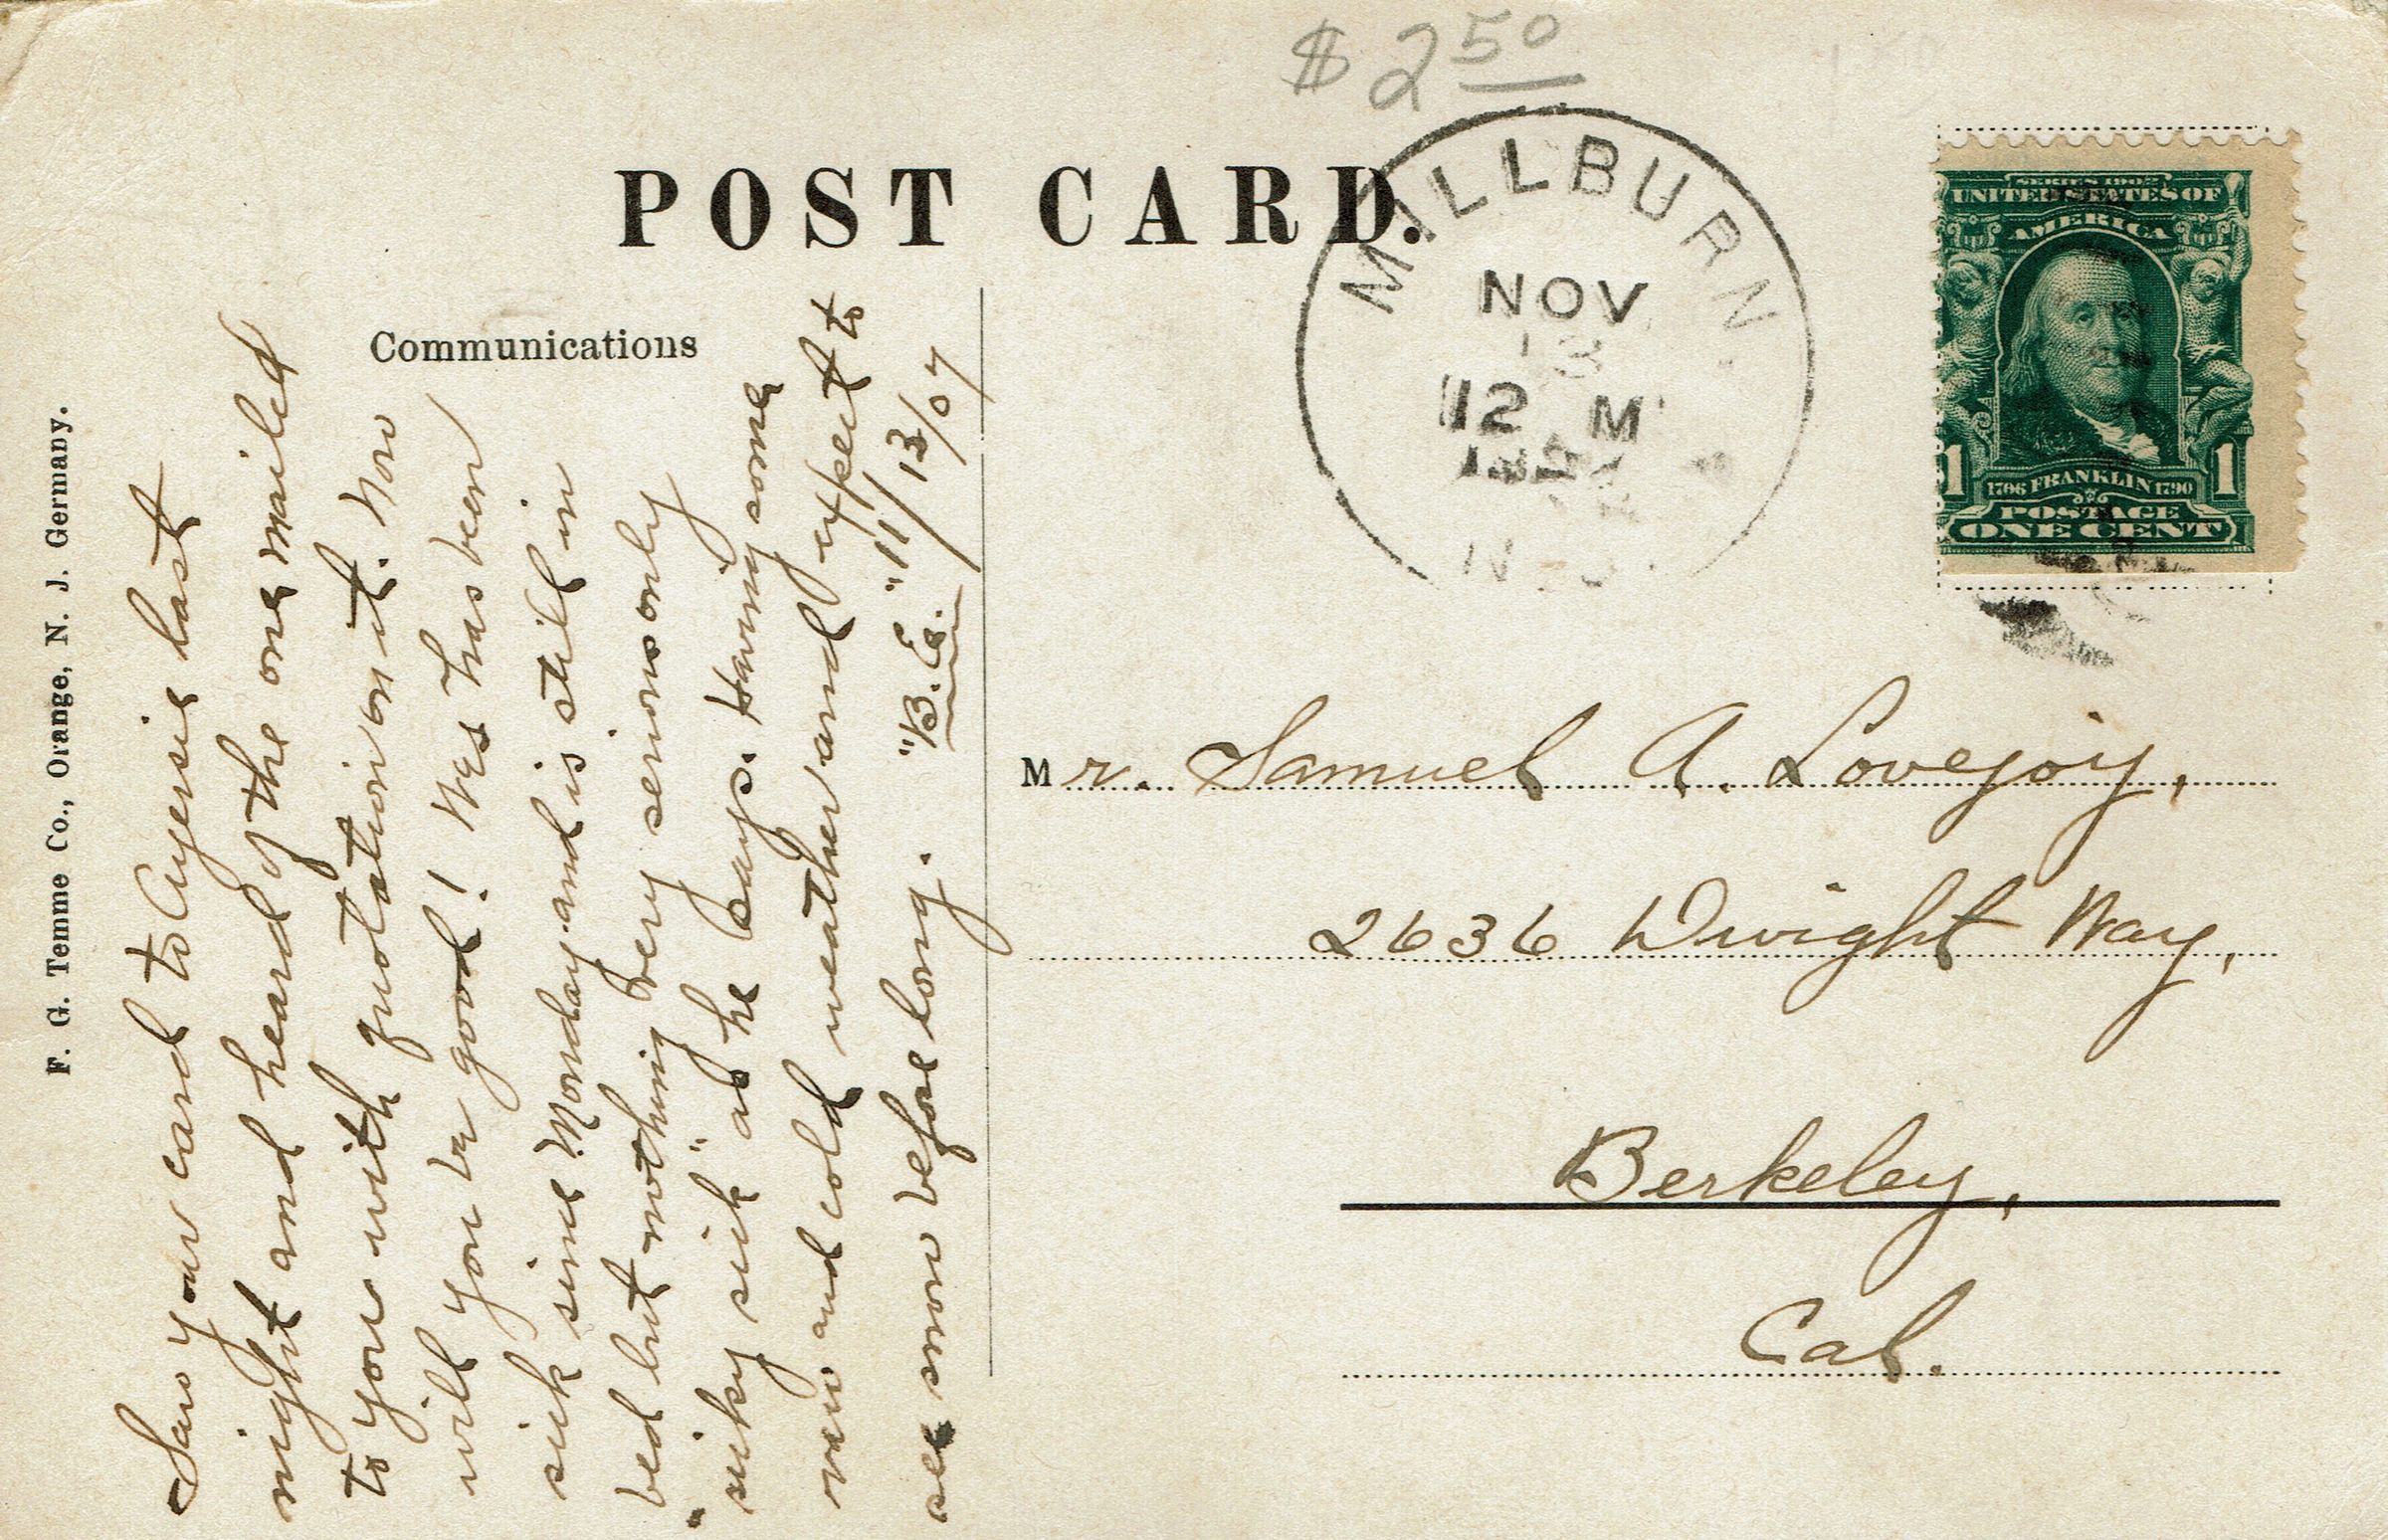 $2 50
POST CARD.
Communications
F. G. Temme Co., Orange, N. J. Germany.
MILLBURN
NOV
13
12 M
N.J.
SERIES 1902
UNITED STATES OF
AMERICA
1 1706 FRANKLIN 1790 1
POSTAGE
ONE CENT
Saw your card to Ayersie last
night and heard of the one mailed
to you with quotation on it. Now
will you be good! Wes has been
sick since Monday and is still in
bed but nothing very serious only
"sicky sick" as he says. Having some
rain and cold weather and expect to
see snow before long. "B. E." 11/13/07
Mr. Samuel A. Lovejoy,
2636 Dwight Way,
Berkeley,
Cal.